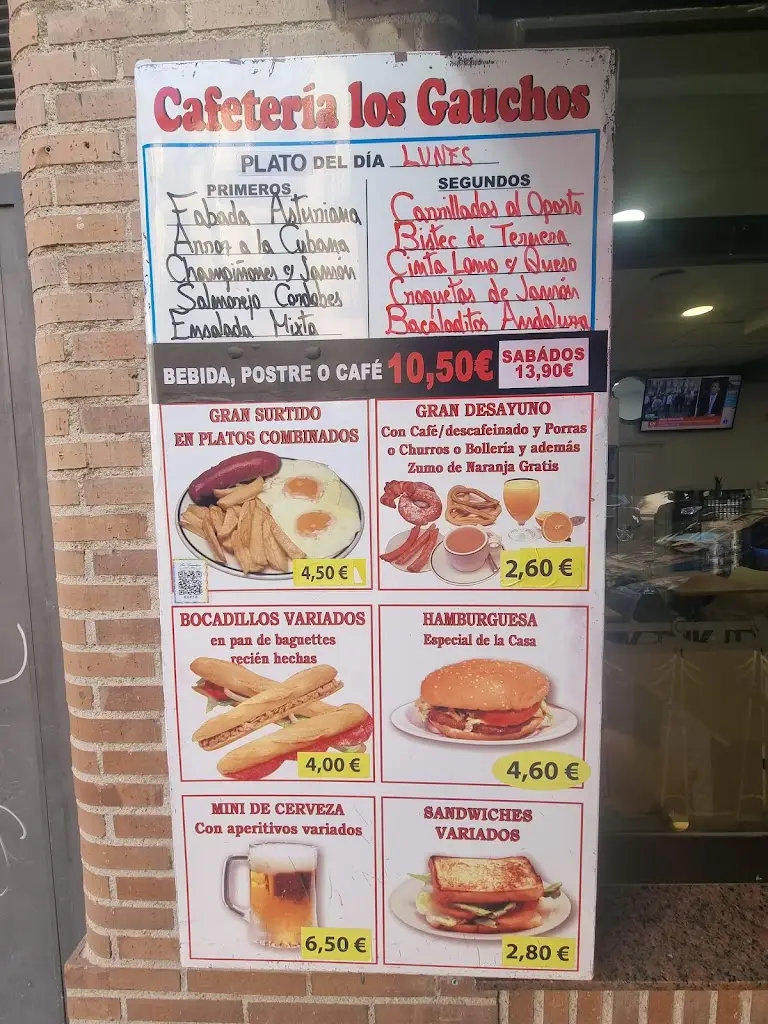 Cafetería los Gauchos
PLATO DEL DÍA LUNES
PRIMEROS
Fabada Asturiana
Arroz a la Cubana
Champiñones y Jamón
Salmorejo Cordobes
Ensalada Mixta
SEGUNDOS
Carrilladas al Oporto
Bistec de Ternera
Cinta Lomo y Queso
Croquetas de Jamón
Bacaladitos Andaluza
BEBIDA, POSTRE O CAFÉ 10,50€
SABÁDOS
13,90€
GRAN SURTIDO
EN PLATOS COMBINADOS
4,50 €
GRAN DESAYUNO
Con Café/descafeinado y Porras
o Churros o Bollería y además
Zumo de Naranja Gratis
2,60 €
BOCADILLOS VARIADOS
en pan de baguettes
recién hechas
4,00 €
HAMBURGUESA
Especial de la Casa
4,60 €
MINI DE CERVEZA
Con aperitivos variados
6,50 €
SANDWICHES
VARIADOS
2,80 €